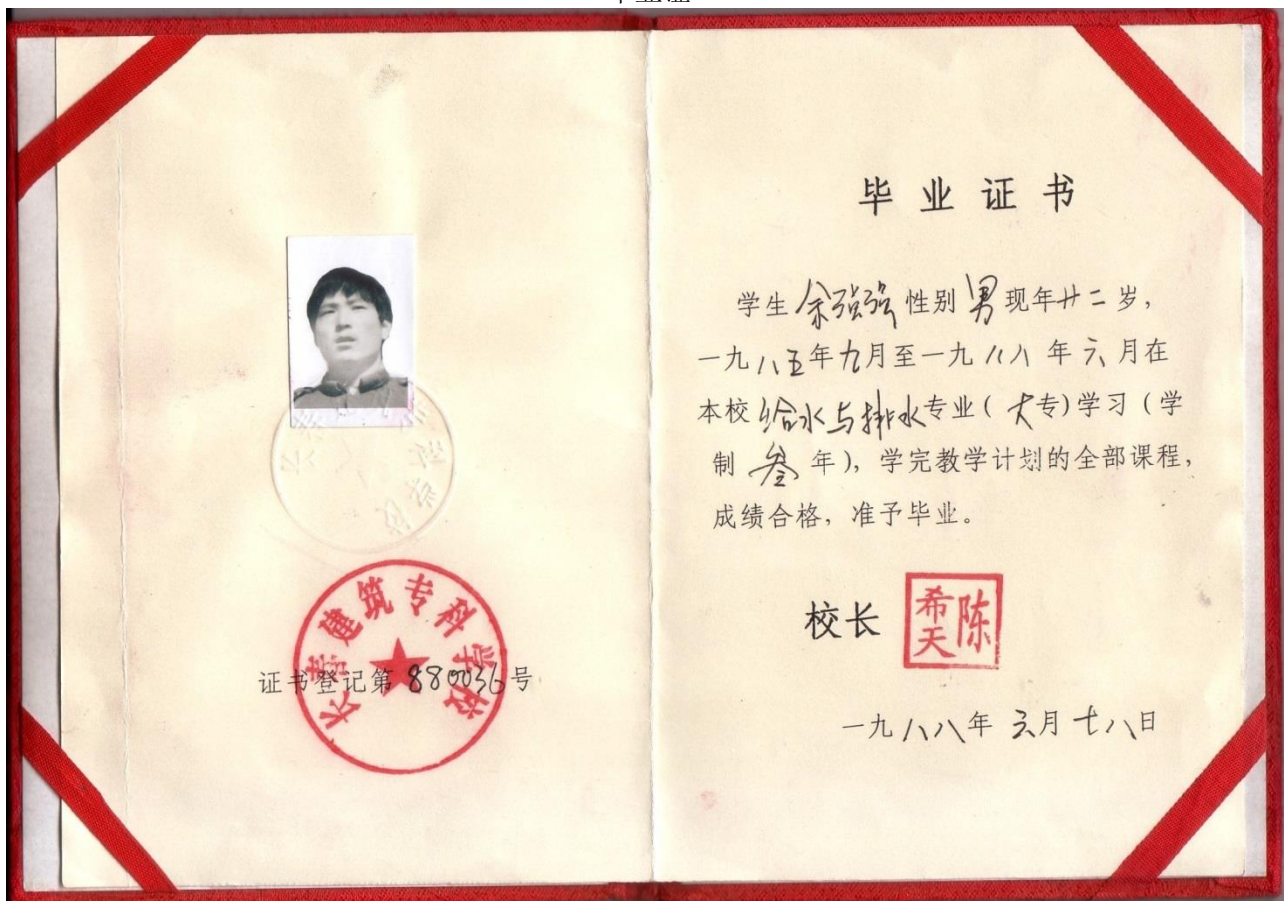 长春建筑专科学校
证书登记第880036号
毕业证书
学生余强强性别男现年廿二岁,
一九八五年九月至一九八八年六月在
本校给水与排水专业(大专)学习(学
制叁年),学完教学计划的全部课程,
成绩合格,准予毕业。
校长 陈希天
一九八八年六月廿八日